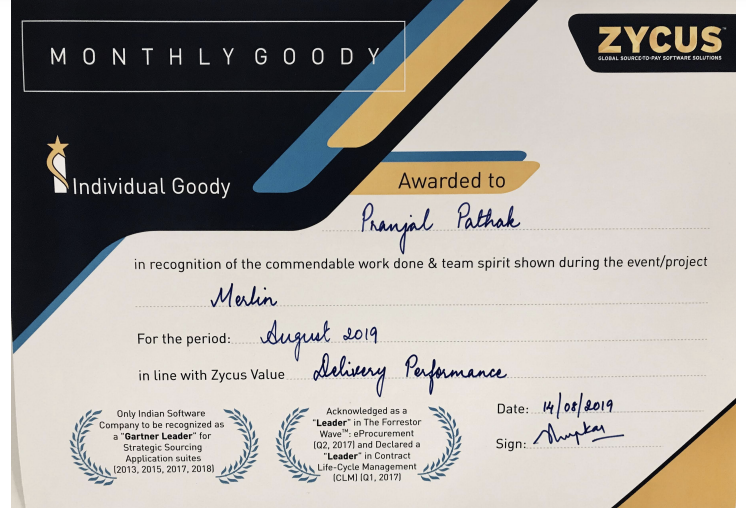 MONTHLY GOODY
ZYCUS
GLOBAL SOURCE-TO-PAY SOFTWARE SOLUTIONS
Individual Goody
Awarded to
Pranjal Pathak
in recognition of the commendable work done & team spirit shown during the event/project
Merlin
For the period: August 2019
in line with Zycus Value Delivery Performance
Only Indian Software
Company to be recognized as
a "Gartner Leader" for
Strategic Sourcing
Application suites
(2013, 2015, 2017, 2018)
Acknowledged as a
"Leader" in The Forrestor
Wave™: eProcurement
(Q2, 2017) and Declared a
"Leader" in Contract
Life-Cycle Management
(CLM) (Q1, 2017)
Date: 14/08/2019
Sign: